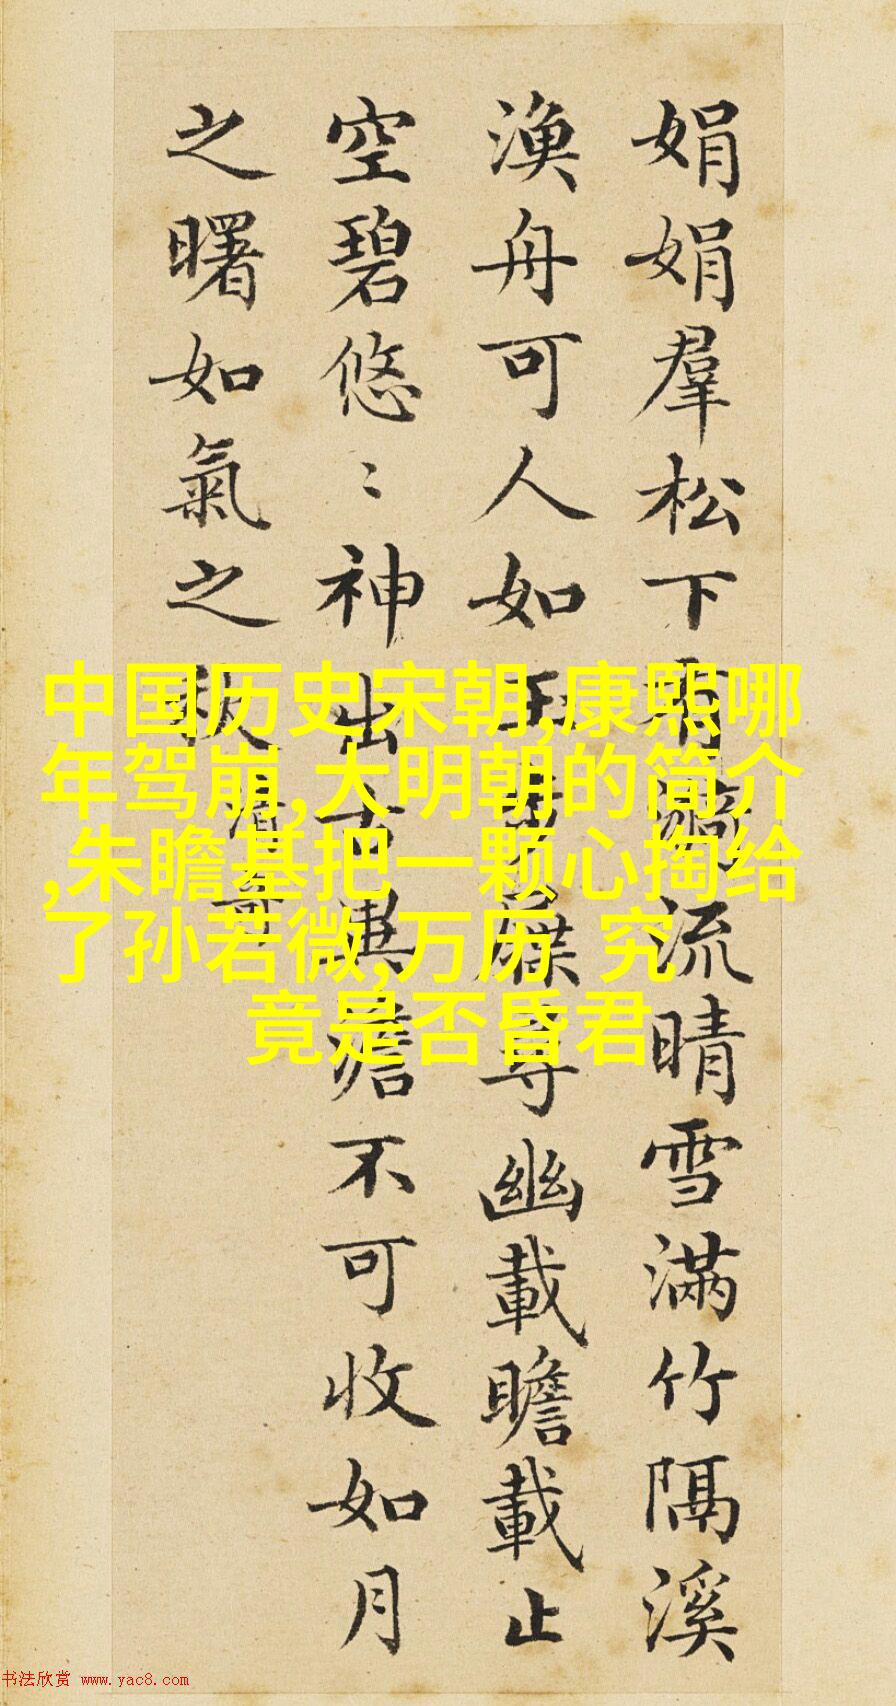 娟娟羣松下有漪流晴雪滿竹隔溪
漁舟可人如玉步屧尋幽載瞻載止
空碧悠〻神出古異澹不可收如月
之曙如氣之秋 清奇
中国历史宋朝,康熙哪
年驾崩,大明朝的简介
,朱瞻基把一颗心掏给
了孙若微,万历 究
竟是否昏君
书法欣赏 www.yac8.com